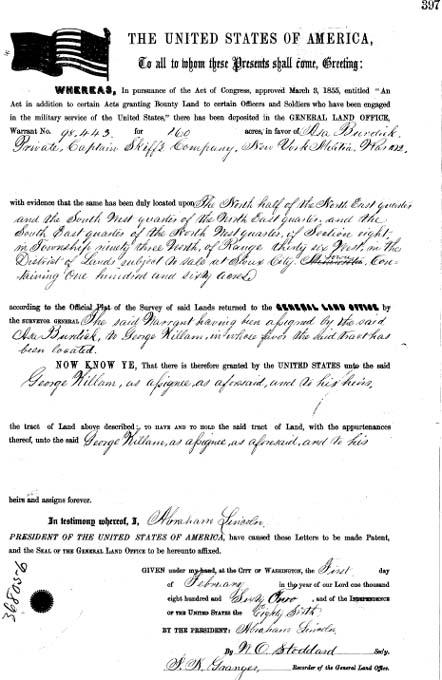 397
THE UNITED STATES OF AMERICA,
To all to whom these Presents shall come, Greeting:
WHEREAS, In pursuance of the Act of Congress, approved March 3, 1855, entitled "An
Act in addition to certain Acts granting Bounty Land to certain Officers and Soldiers who have been engaged
in the military service of the United States," there has been deposited in the GENERAL LAND OFFICE,
Warrant No. 98.443 for 160 acres, in favor of Asa Burdick
Private, Captain Skiff's Company, New York Militia, War 1812
with evidence that the same has been duly located upon The North half of the North East quarter
and the South West quarter of the North East quarter, and the
South East quarter of the North West quarter, of Section eight,
in Township ninety three North, of Range thirty six West, in the
District of Lands subject to sale at Sioux City. Iowa, Con-
taining One hundred and sixty acres
according to the Official Plat of the Survey of said Lands returned to the GENERAL LAND OFFICE by
the SURVEYOR GENERAL The said Warrant having been assigned by the said
Asa Burdick, to George Willam, in whose favor the said tract has
been located.
NOW KNOW YE, That there is therefore granted by the UNITED STATES unto the said
George Willam, as assignee, as aforesaid, and to his heirs,
the tract of Land above described; TO HAVE AND TO HOLD the said tract of Land, with the appurtenances
thereof, unto the said George Willam, as assignee, as aforesaid, and to his
heirs and assigns forever.
In testimony whereof, I, Abraham Lincoln,
PRESIDENT OF THE UNITED STATES OF AMERICA, have caused these Letters to be made Patent,
and the SEAL OF THE GENERAL LAND OFFICE to be hereunto affixed.
GIVEN under my hand, at the CITY OF WASHINGTON, the First day
of February in the year of our Lord one thousand
eight hundred and Sixty Two, and of the INDEPENDENCE
OF THE UNITED STATES the Eighty Sixth
BY THE PRESIDENT: Abraham Lincoln
By W. O. Stoddard Secy.
Recorder of the General Land Office.